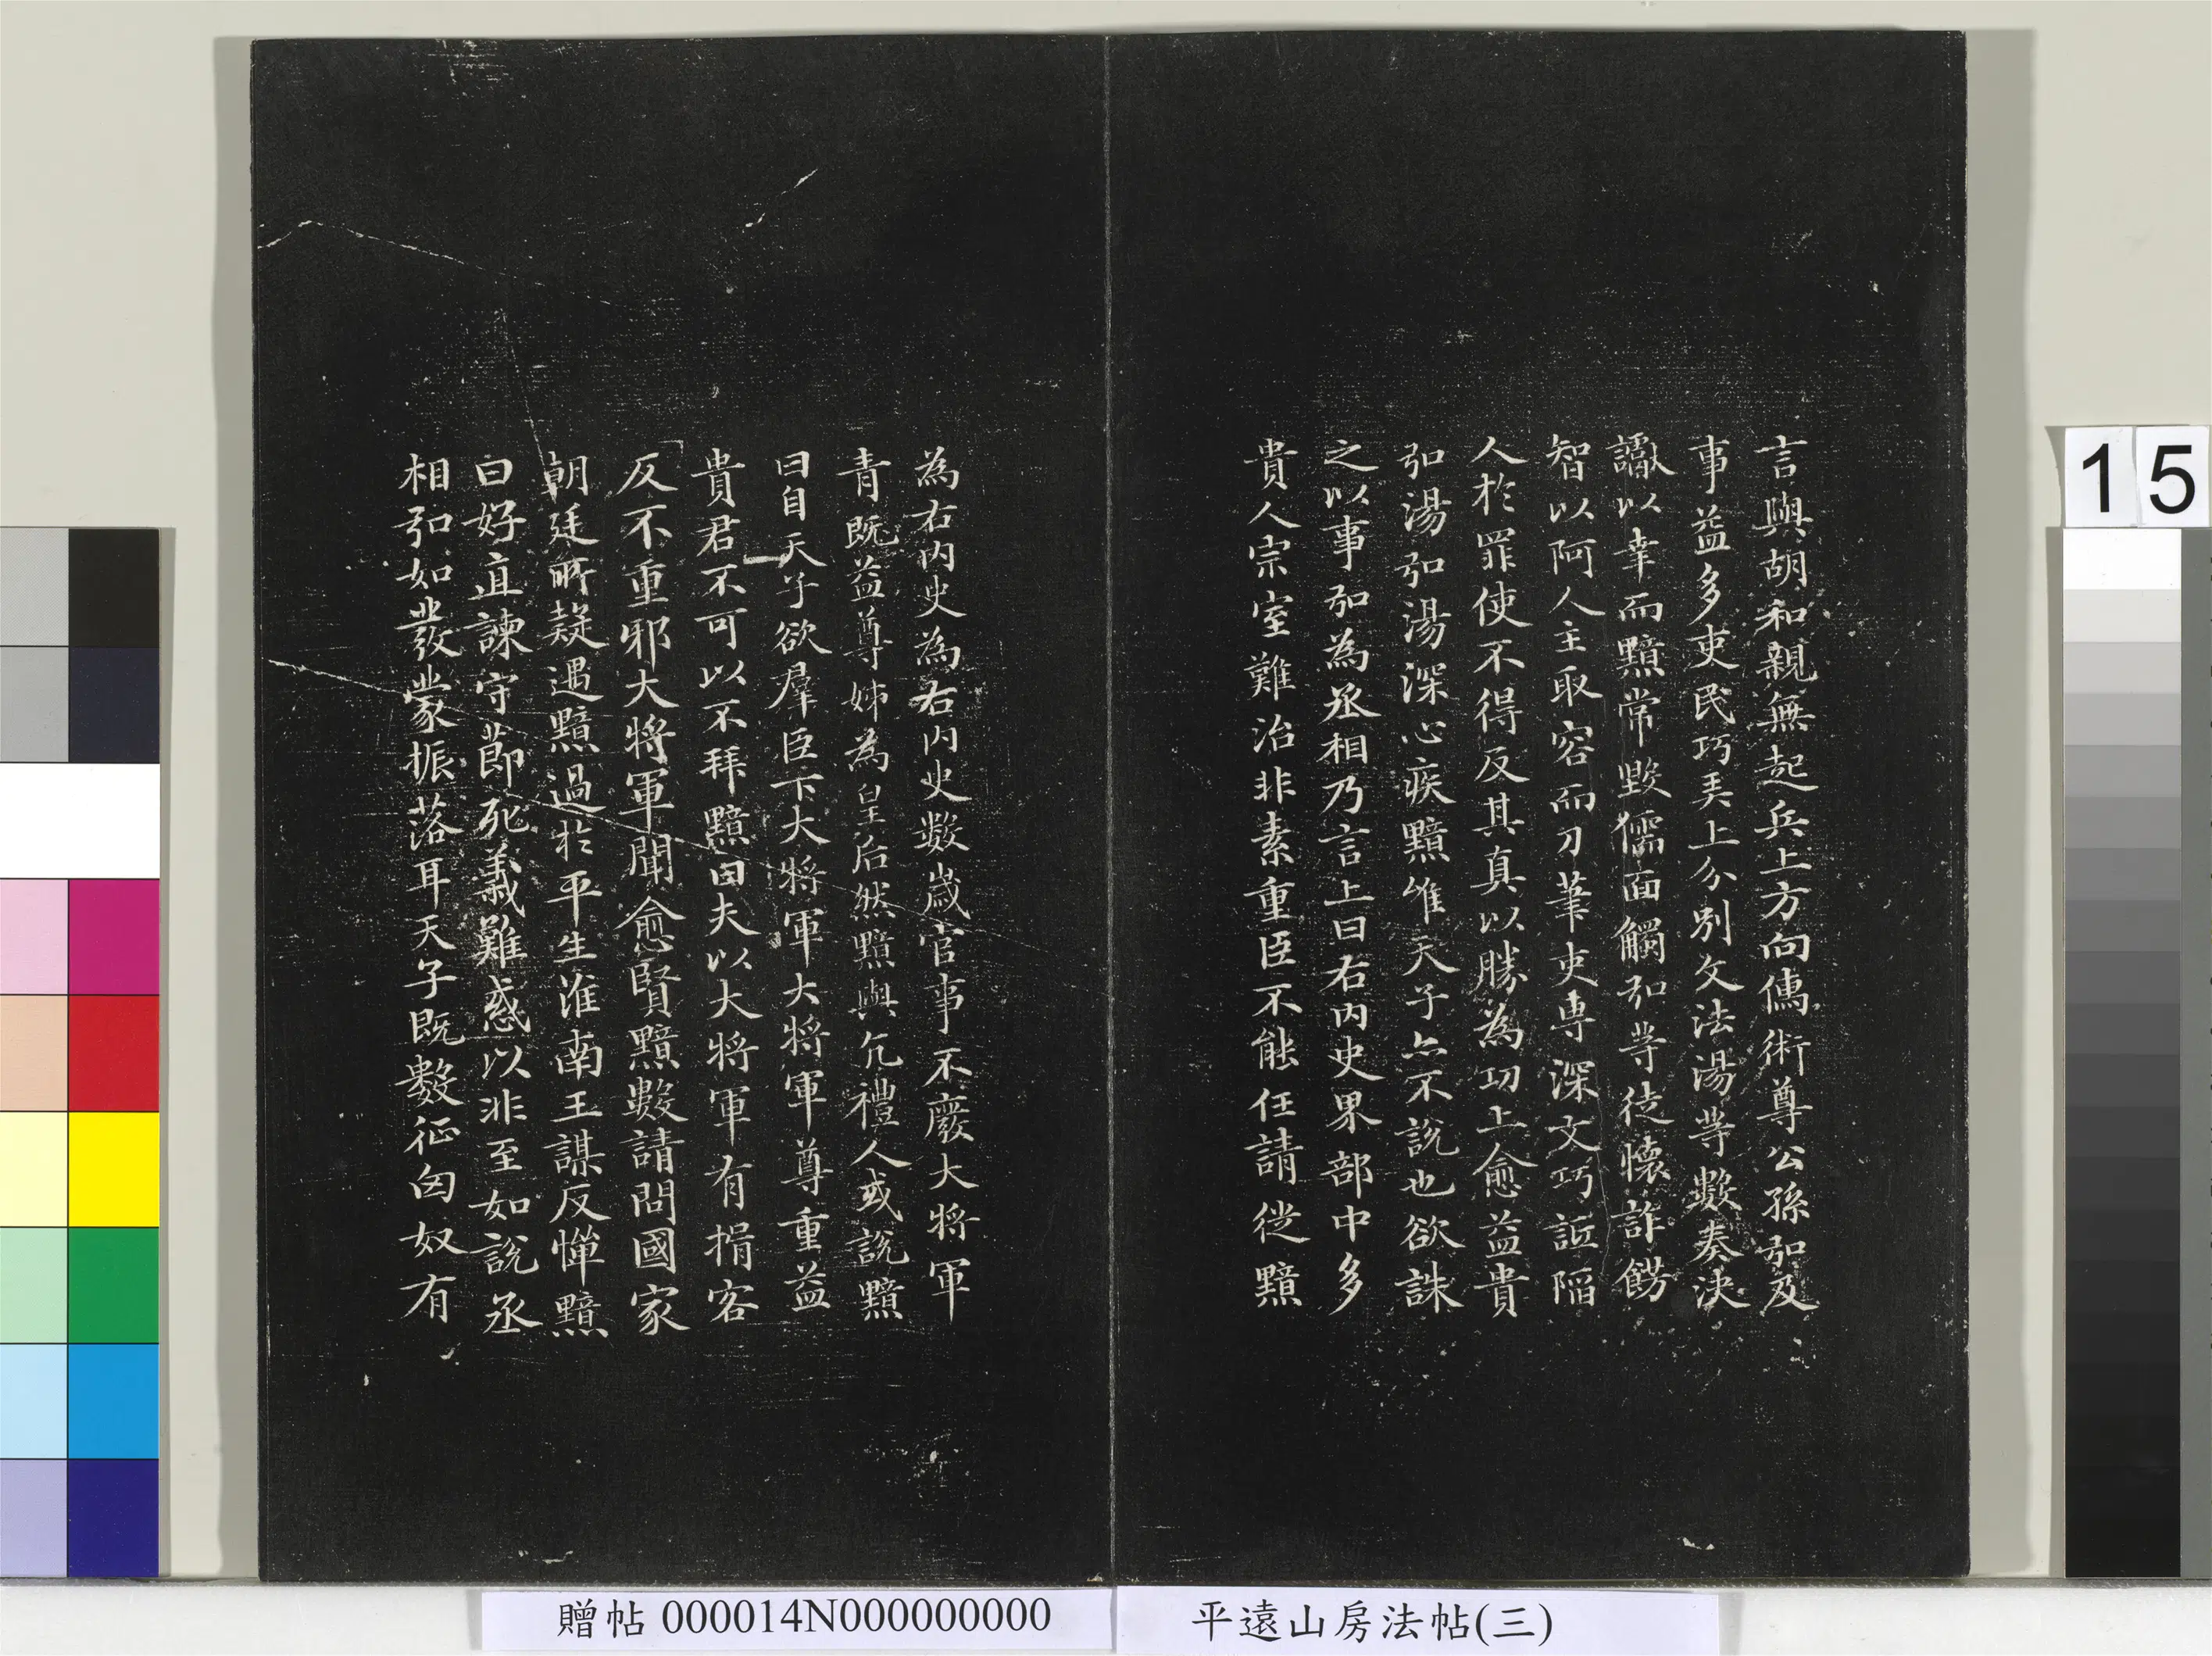 言與胡和親無起兵上方向儒術尊公孫弘及
事益多吏民巧弄上分別文法湯等數奏決
讞以幸而黯常毀儒面觸弘等徒懷詐飾
智以阿人主取容而刀筆吏專深文巧詆陷
人於罪使不得反其真以勝為功上愈益貴
弘湯弘湯深心疾黯唯天子亦不說也欲誅
之以事弘為丞相乃言上曰右內史界部中多
貴人宗室難治非素重臣不能任請徙黯
為右內史為右內史數歲官事不廢大將軍
青既益尊姊為皇后然黯與亢禮人或說黯
曰自天子欲群臣下大將軍大將軍尊重益
貴君不可以不拜黯曰夫以大將軍有揖客
反不重邪大將軍聞愈賢黯數請問國家
朝廷所疑遇黯過於平生淮南王謀反憚黯
曰好直諫守節死義難惑以非至如說丞
相弘如發蒙振落耳天子既數征匈奴有
15
贈帖 000014N000000000
平遠山房法帖(三)